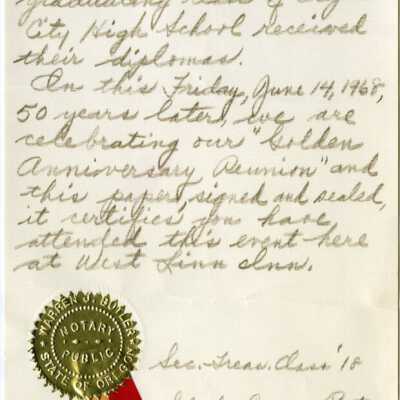 graduating class of
City High School received
their diplomas.
On this Friday, June 14, 1968,
50 years later, we are
celebrating our "Golden
Anniversary Reunion" and
this paper, signed and sealed,
it certifies you have
attended this event here
at West Linn Inn.
WARREN J.
NOTARY
PUBLIC
STATE OF OREGON
Sec.-Treas. Class '18